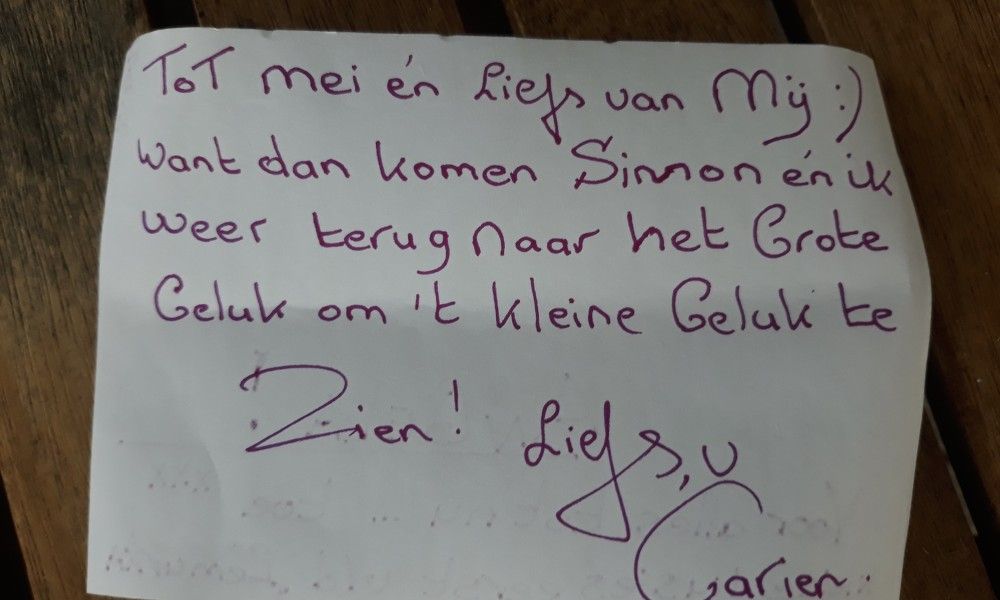 Tot mei én Liefs van Mij :)
want dan komen Simon én ik
weer terug naar het Grote
Geluk om 't kleine Geluk te
Zien! Liefs, u
Carien.